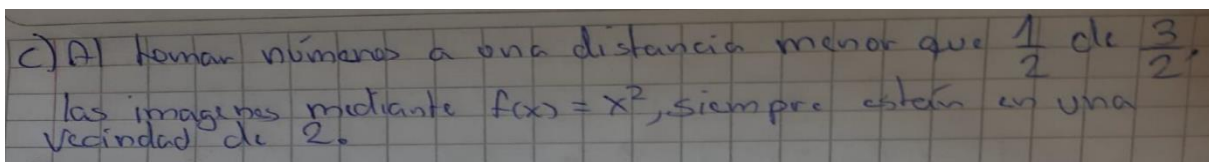 c) Al tomar números a una distancia menor que 1/2 de 3/2,
las imagenes mediante f(x) = x², siempre están en una
vecindad de 2.